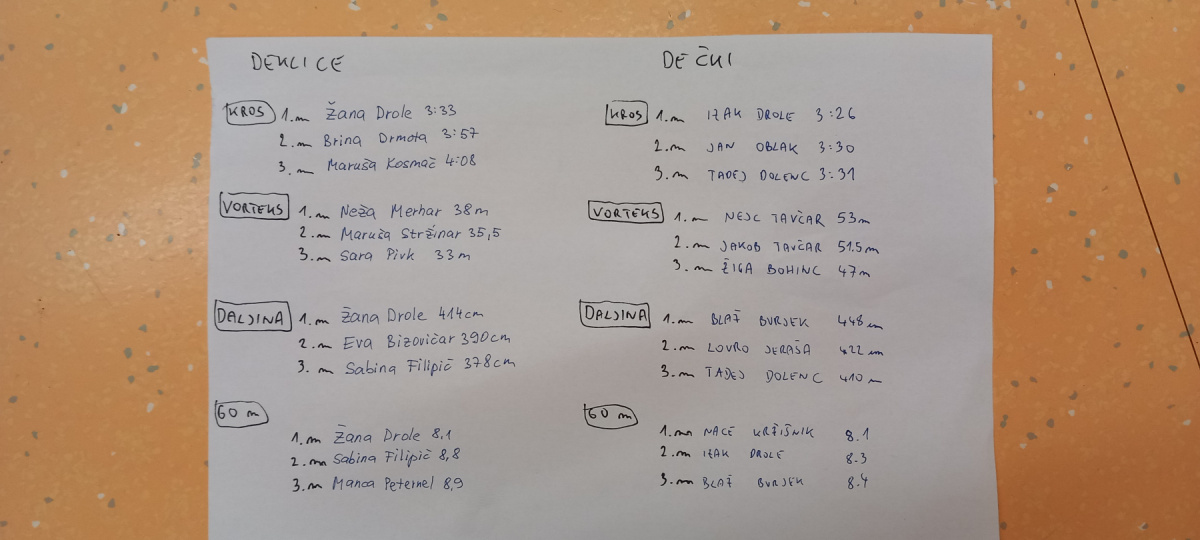 DEKLICE
KROS 1.m Žana Drole 3:33
2.m Brina Drmota 3:57
3.m Maruša Kosmač 4:08
VORTEKS 1.m Neža Merhar 38m
2.m Maruša Stržinar 35,5
3.m Sara Pivk 33m
DALJINA 1.m Žana Drole 414cm
2.m Eva Bizovičar 390cm
3.m Sabina Filipič 378cm
60 m
1.m Žana Drole 8,1
2.m Sabina Filipič 8,8
3.m Manca Peternel 8,9
DEČKI
KROS 1.m IZAK DROLE 3:26
2.m JAN OBLAK 3:30
3.m TADEJ DOLENC 3:31
VORTEKS 1.m NEJC TAVČAR 53m
2.m JAKOB TAVČAR 51.5m
3.m ŽIGA BOHINC 47m
DALJINA 1.m BLAŽ BURJEK 448cm
2.m LOVRO JERAŠA 422cm
3.m TADEJ DOLENC 410m
60 m
1.m NACE KRŽIŠNIK 8.1
2.m IZAK DROLE 8.3
3.m BLAŽ BURJEK 8.4